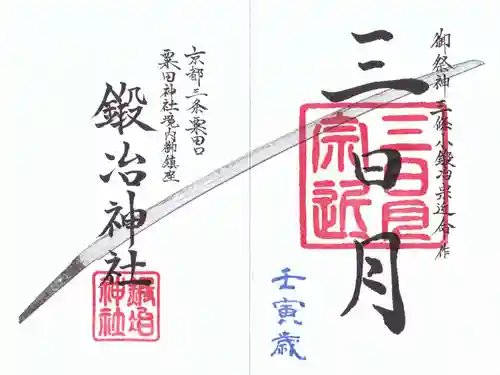 御祭神三條小鍛冶宗近命作
三日月
三日月
宗近
壬寅歳
京都三条粟田口
粟田神社境内御鎮座
鍛冶神社
鍛冶
神社